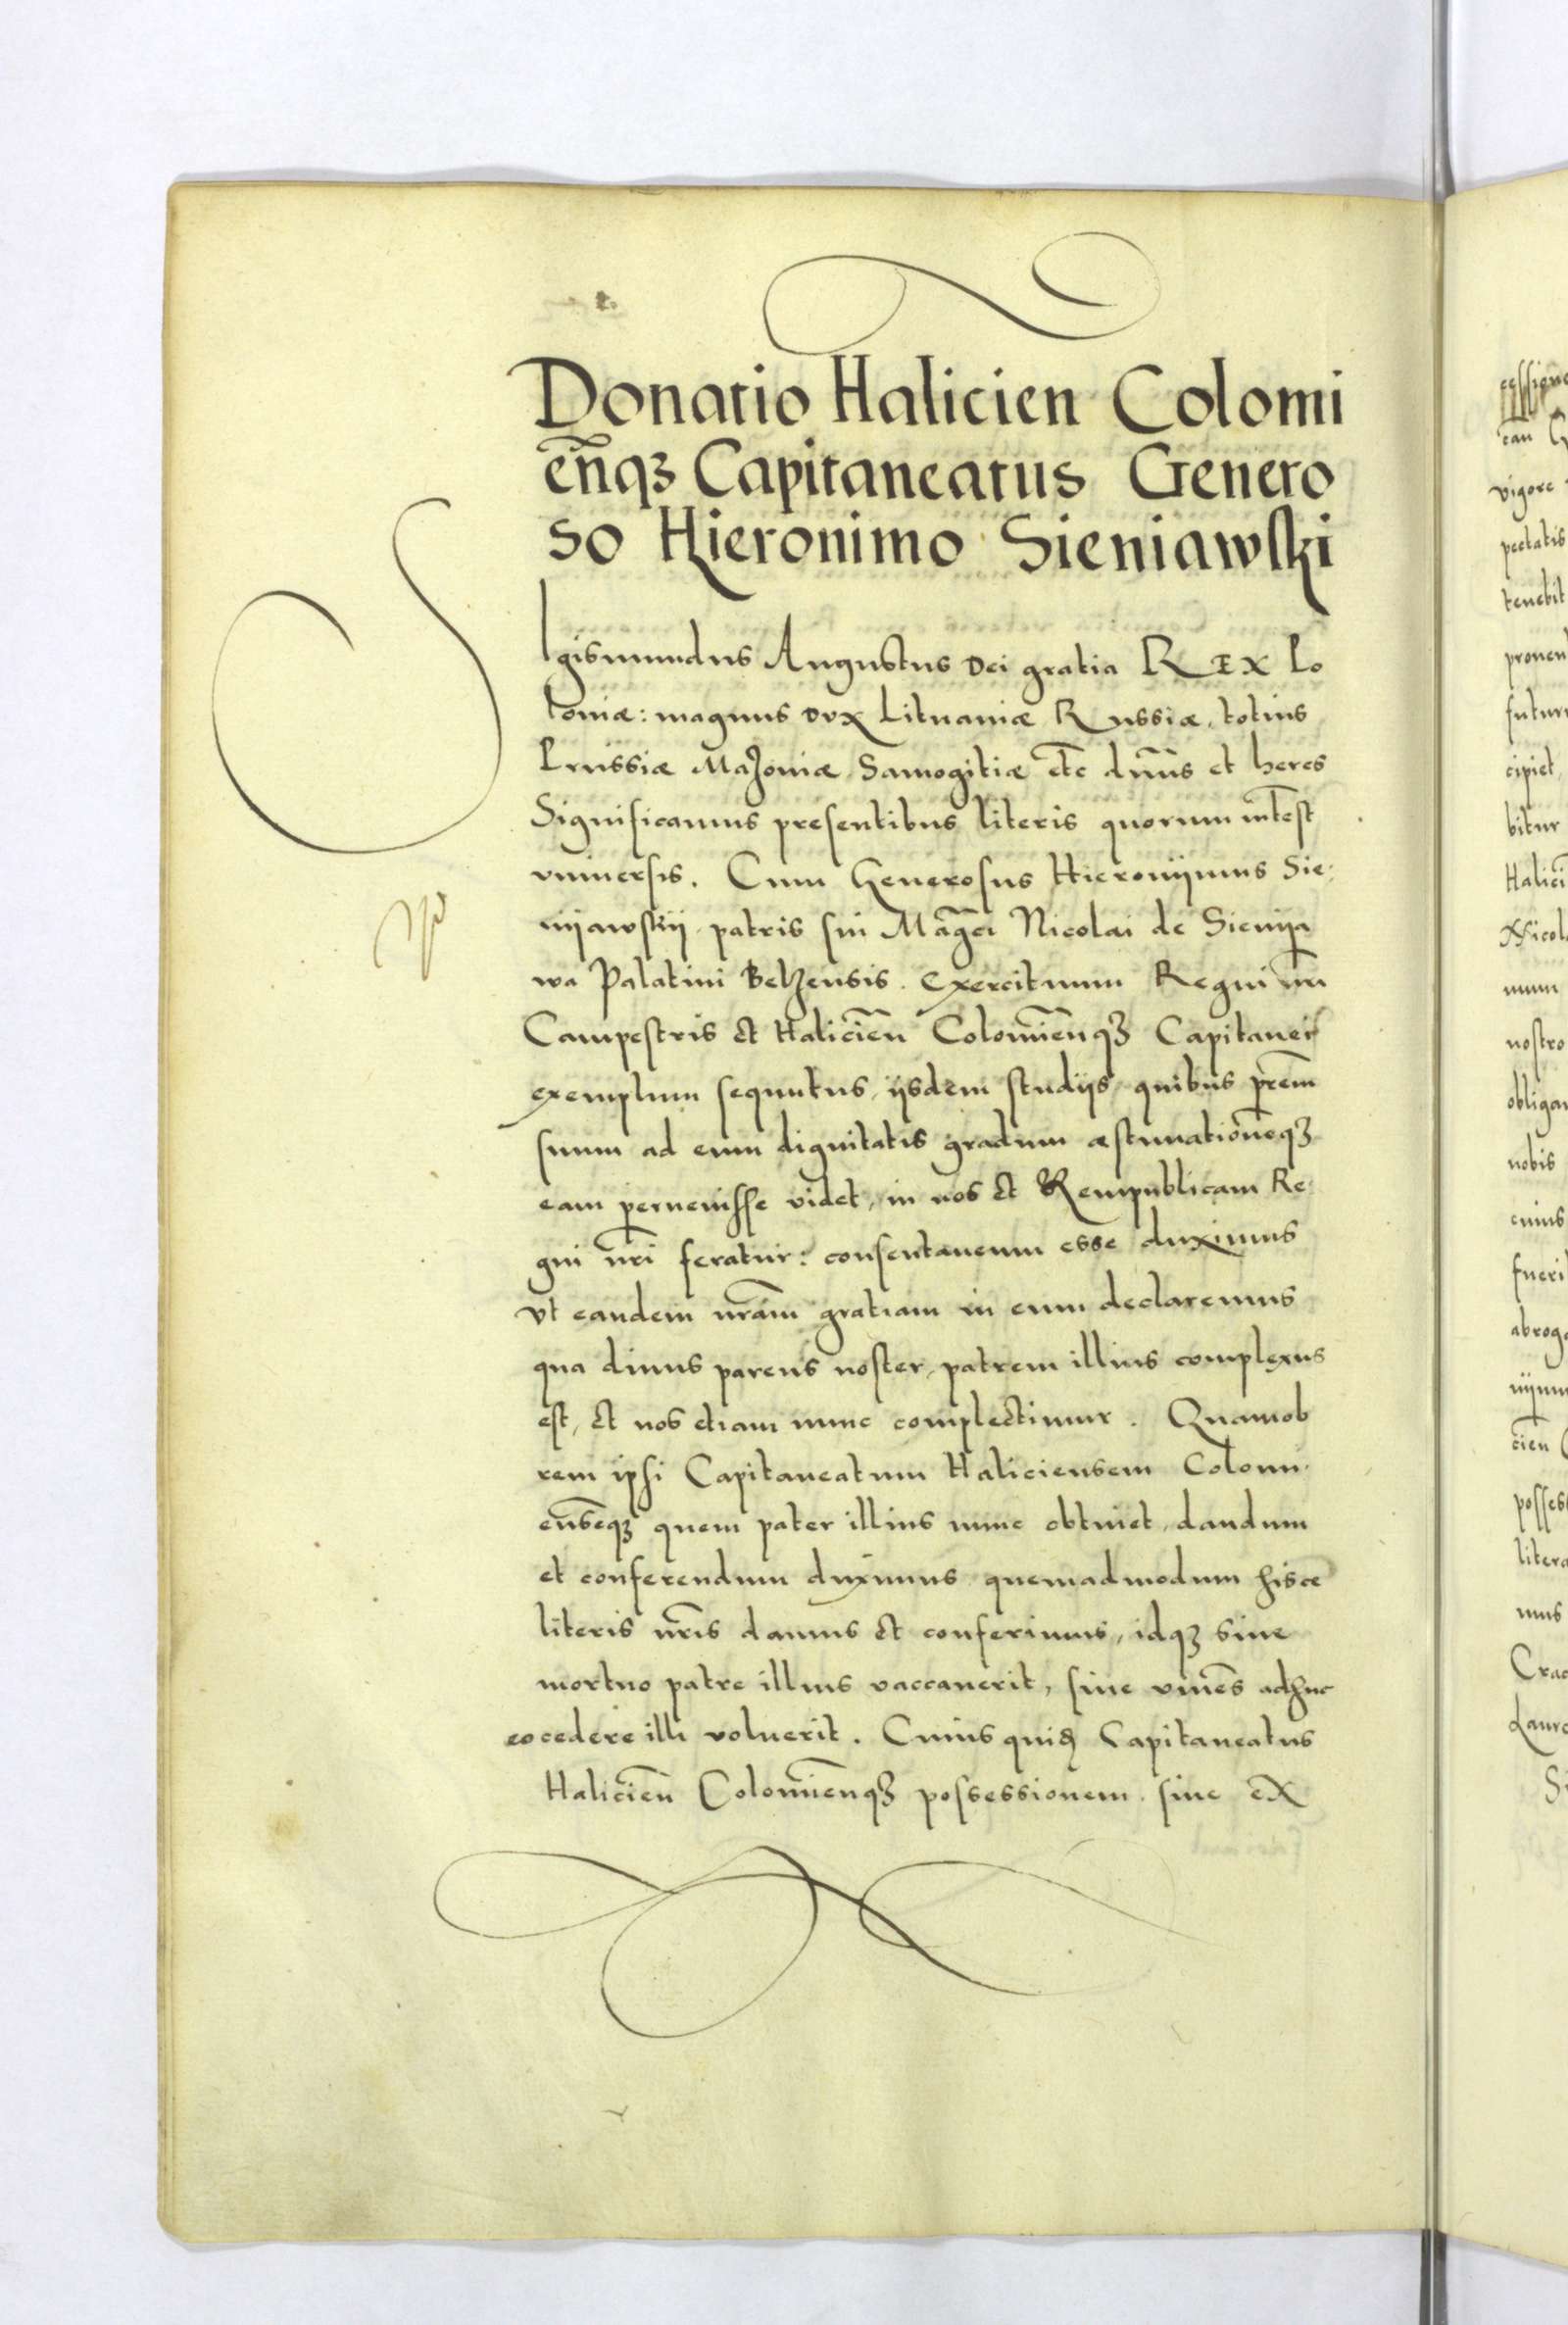 Donatio Halicien Colomi
en̄qꝫ Capitaneatus Genero
so Hieronimo Sieniawski
Sigismundus Augustus Dei gratia REX Po
loniæ: magnus Dux Lituaniæ Russiæ, totius
Prussiæ Mazoniæ Samogitiæ et̄c dn̄us et heres
Significamus presentibus literis quorum int̄est
vniuersis. Cum Generosus Hieronijmus Sie:
nijawskij patris sui Mag̃ci Nicolai de Sienija
wa Palatini Belzensis. Exercituum Regni nr̄i
Campestris et Halicien̄ Colomien̄qꝫ Capitanei
exemplum sequutus, ijsdem studijs, quibus pr̄em
suum ad eum dignitatis gradum æstimation̄eqꝫ
eam peruenisse videt, in nos et Rempublicam Re
gni nr̄i feratur: consentaneum esse duximus
vt eandem nr̄am gratiam in eum declaremus
qua diuus parens noster, patrem illius complexus
est, et nos etiam nunc complectimur. Quamob
rem ipsi Capitaneatum Haliciensem Colomi
ens̄eqꝫ quem pater illius nunc obtinet, dandum
et conferendum duximus quemadmodum hisce
literis nr̄is damus et conferimus, idqꝫ siue
mortuo patre illius vaccauerit, siue viuēs adhuc
eo cedere illi voluerit. Cuius quid̄ Capitaneatus
Halicien̄ Colomien̄qꝫ possessionem siue ex
vigore
pectatis
tenebit
cipiet
bitur
mum
nostro
nobis
cuius